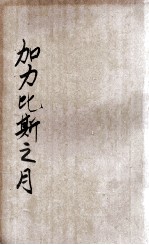 加力比斯之月